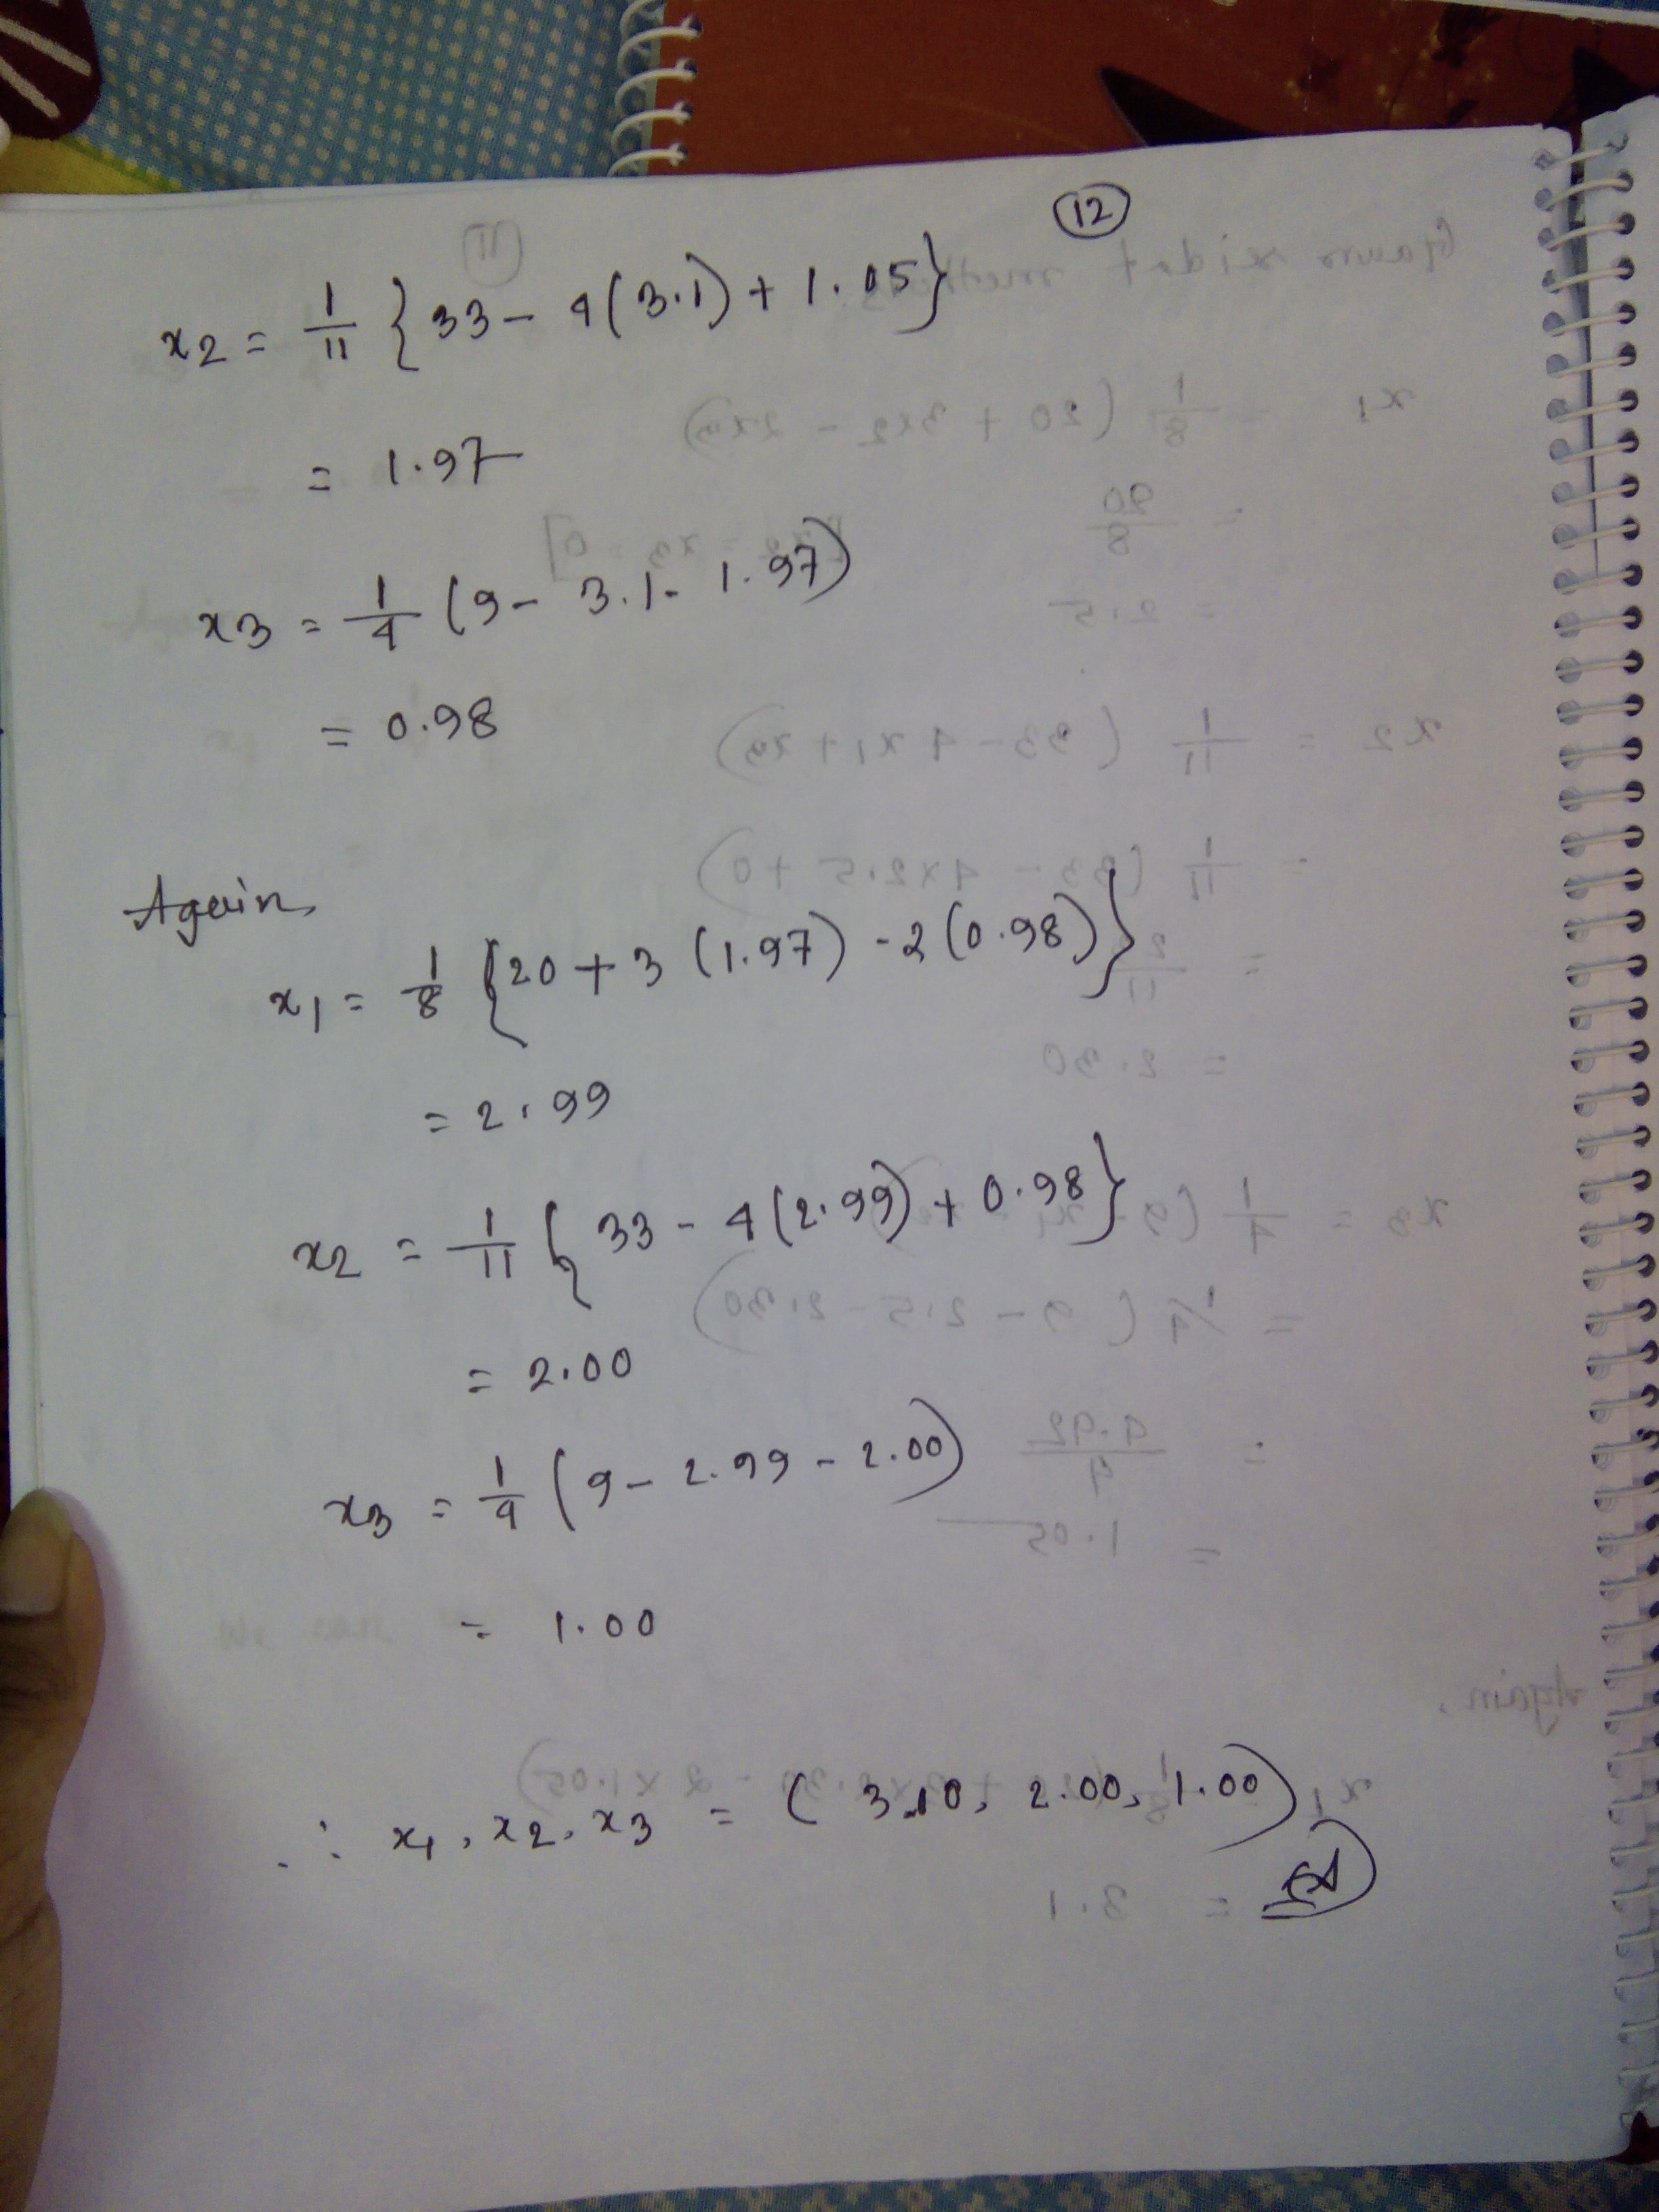 12
x2 = 1/11 { 33 - 4(3.1) + 1.05}
= 1.97
x3 = 1/4 (9 - 3.1 - 1.97)
= 0.98
Again,
x1 = 1/8 {20 + 3 (1.97) - 2(0.98)}
= 2.99
x2 = 1/11 { 33 - 4(2.99) + 0.98}
= 2.00
x3 = 1/4 (9 - 2.99 - 2.00)
= 1.00
∴ x1, x2, x3 = ( 3.10, 2.00, 1.00)